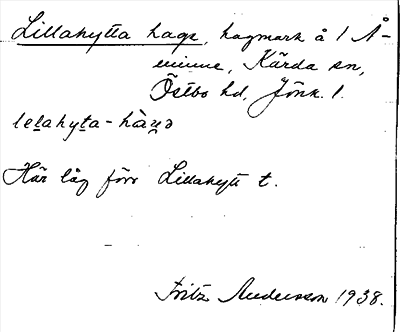 Lillahytta hage, hagmark å 1 Å-
minne, Kärda sn,
Östbo hd, Jönk. l.
lelahyta-hàgə
Här låg förr Lillahytt t.
Fritz Andersson 1938.